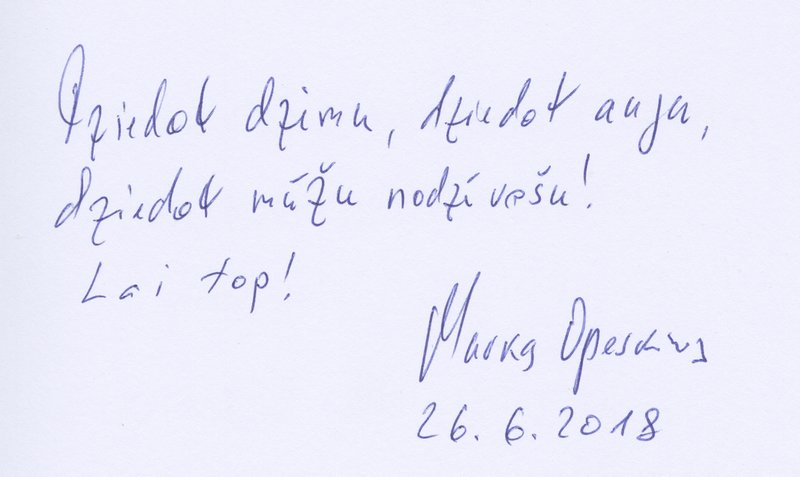 Dziedot dzimu, dziedot augu,
dziedot mūžu nodzīvošu!
Lai top!
Marks Opeskins
26.6.2018